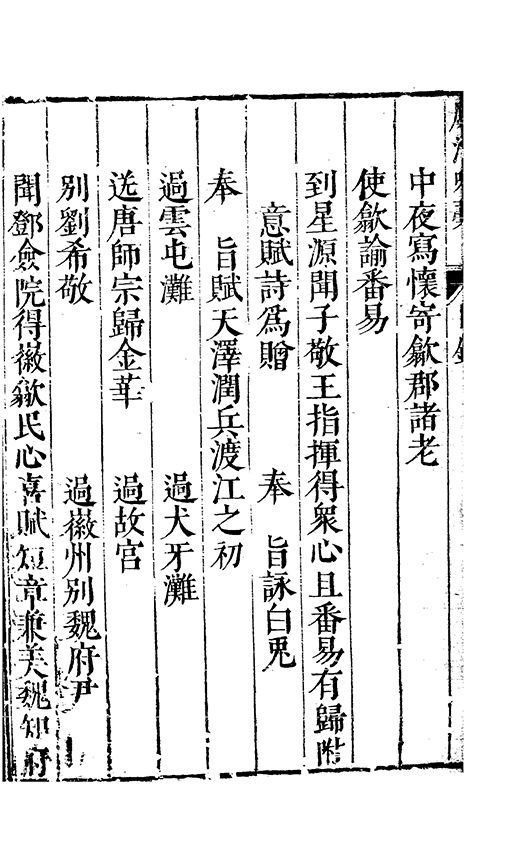 中夜寫懷寄歙郡諸老
使歙諭番昜
到星源聞子敬王指揮得衆心且番昜有歸附
意賦詩爲贈　奉　旨詠白兎
奉　旨賦天澤潤兵渡江之初
過雲屯灘　過犬牙灘
送唐師宗歸金華　過故宫
別劉希敬　過徽州別魏府尹
聞鄧僉院得徽歙民心喜賦短章兼美魏知府